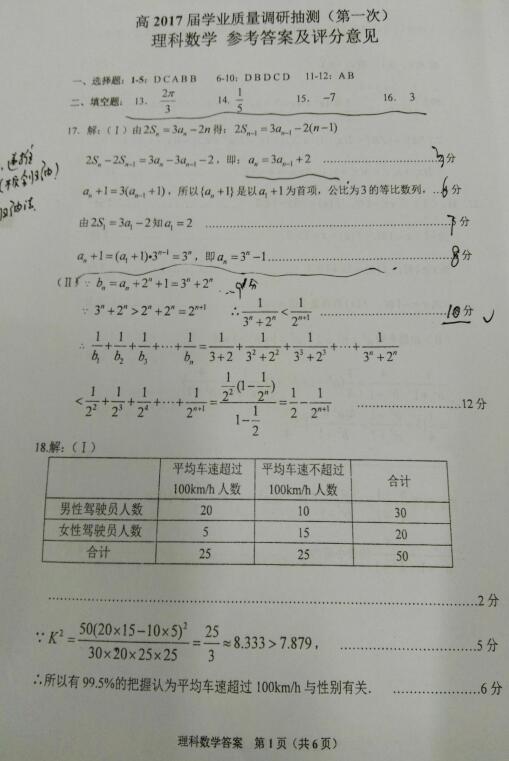 高 2017 届学业质量调研抽测（第一次）
理科数学 参考答案及评分意见
一、选择题：1-5：DCABB 6-10：DBDCD 11-12：AB
二、填空题：13. 2π/3 14. 1/5 15. −7 16. 3
17. 解：（Ⅰ）由2Sₙ=3aₙ−2n得：2Sₙ₋₁=3aₙ₋₁−2(n−1)
2Sₙ−2Sₙ₋₁=3aₙ−3aₙ₋₁−2，即：aₙ=3aₙ₋₁+2 ……………………3分
aₙ+1=3(aₙ₋₁+1)，所以{aₙ+1}是以a₁+1为首项，公比为3的等比数列，…6分
由2S₁=3a₁−2知a₁=2 ……………………分
aₙ+1=(a₁+1)•3ⁿ⁻¹=3ⁿ，即aₙ=3ⁿ−1……………………8分
（Ⅱ）∵ bₙ=aₙ+2ⁿ+1=3ⁿ+2ⁿ …9分
∵ 3ⁿ+2ⁿ>2ⁿ+2ⁿ=2ⁿ⁺¹ ∴ 1/(3ⁿ+2ⁿ)<1/2ⁿ⁺¹ ……………………10分
∴ 1/b₁+1/b₂+1/b₃+⋯+1/bₙ=1/(3+2)+1/(3²+2²)+1/(3³+2³)+⋯+1/(3ⁿ+2ⁿ)
<1/2²+1/2³+1/2⁴+⋯+1/2ⁿ⁺¹=(1/2²(1−1/2ⁿ))/(1−1/2)=1/2−1/2ⁿ⁺¹ ……………………12分
18.解：（Ⅰ）
平均车速超过100km/h 人数 平均车速不超过100km/h 人数 合计
男性驾驶员人数 20 10 30
女性驾驶员人数 5 15 20
合计 25 25 50
……………………2分
∵K²=50(20×15−10×5)²/(30×20×25×25)=25/3≈8.333>7.879， ……………………5分
∴所以有 99.5%的把握认为平均车速超过 100km/h 与性别有关． ……………………6分
理科数学答案 第 1 页（共 6 页）